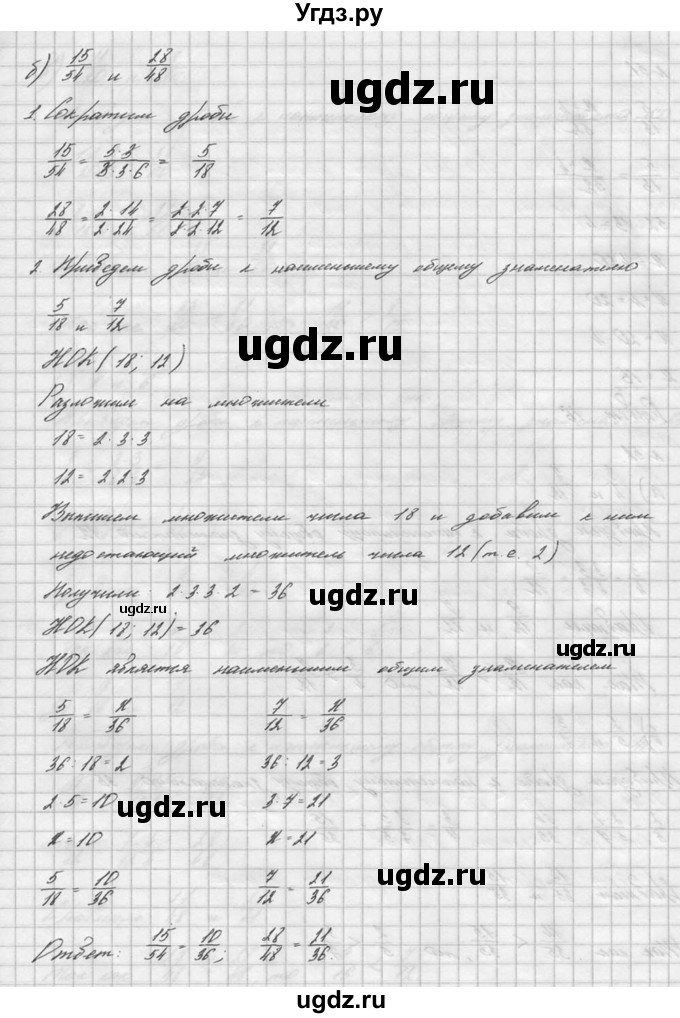 Угдз.ру
б) 15/54 и 28/48
ugdz.ru
1. Сократим дроби
15/54 = 5·3/3·3·6 = 5/18
28/48 = 2·14/2·24 = 2·2·7/2·2·12 = 7/12
2. Приведем дроби к наименьшему общему знаменателю
5/18 и 7/12
ugdz.ru
НОК(18; 12)
Разложим на множители
18 = 2·3·3
12 = 2·2·3
ugdz.ru
Выпишем множители числа 18 и добавим к ним
недостающий множитель числа 12 (т.е. 2)
Получили: 2·3·3·2 = 36
ugdz.ru
ugdz.ru
НОК(18; 12) = 36
НОК является наименьшим общим знаменателем
5/18 = x/36 7/12 = x/36
ugdz.ru
36:18 = 2 36:12 = 3
2·5 = 10 3·7 = 21
ugdz.ru
x = 10 x = 21
5/18 = 10/36 7/12 = 21/36
ugdz.ru
Ответ: 15/54 = 10/36; 28/48 = 21/36.
ugdz.ru